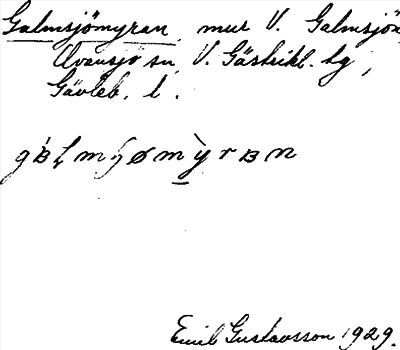 Galmsjömyran, myr V. Galmsjön
Ovansjö sn, V. Gästrikl. tg,
Gävleb. l.
Emil Gustavsson 1929.